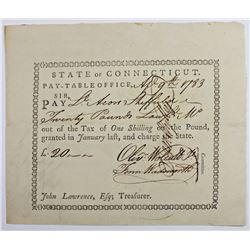 STATE OF CONNECTICUT.
PAY-TABLE-OFFICE, 9th 1783
SIR,
PAY
Twenty Pounds
out of the Tax of One Shilling on the Pound,
granted in January last, and charge the State.
£ 20
John Lawrence, Esq; Treasurer.